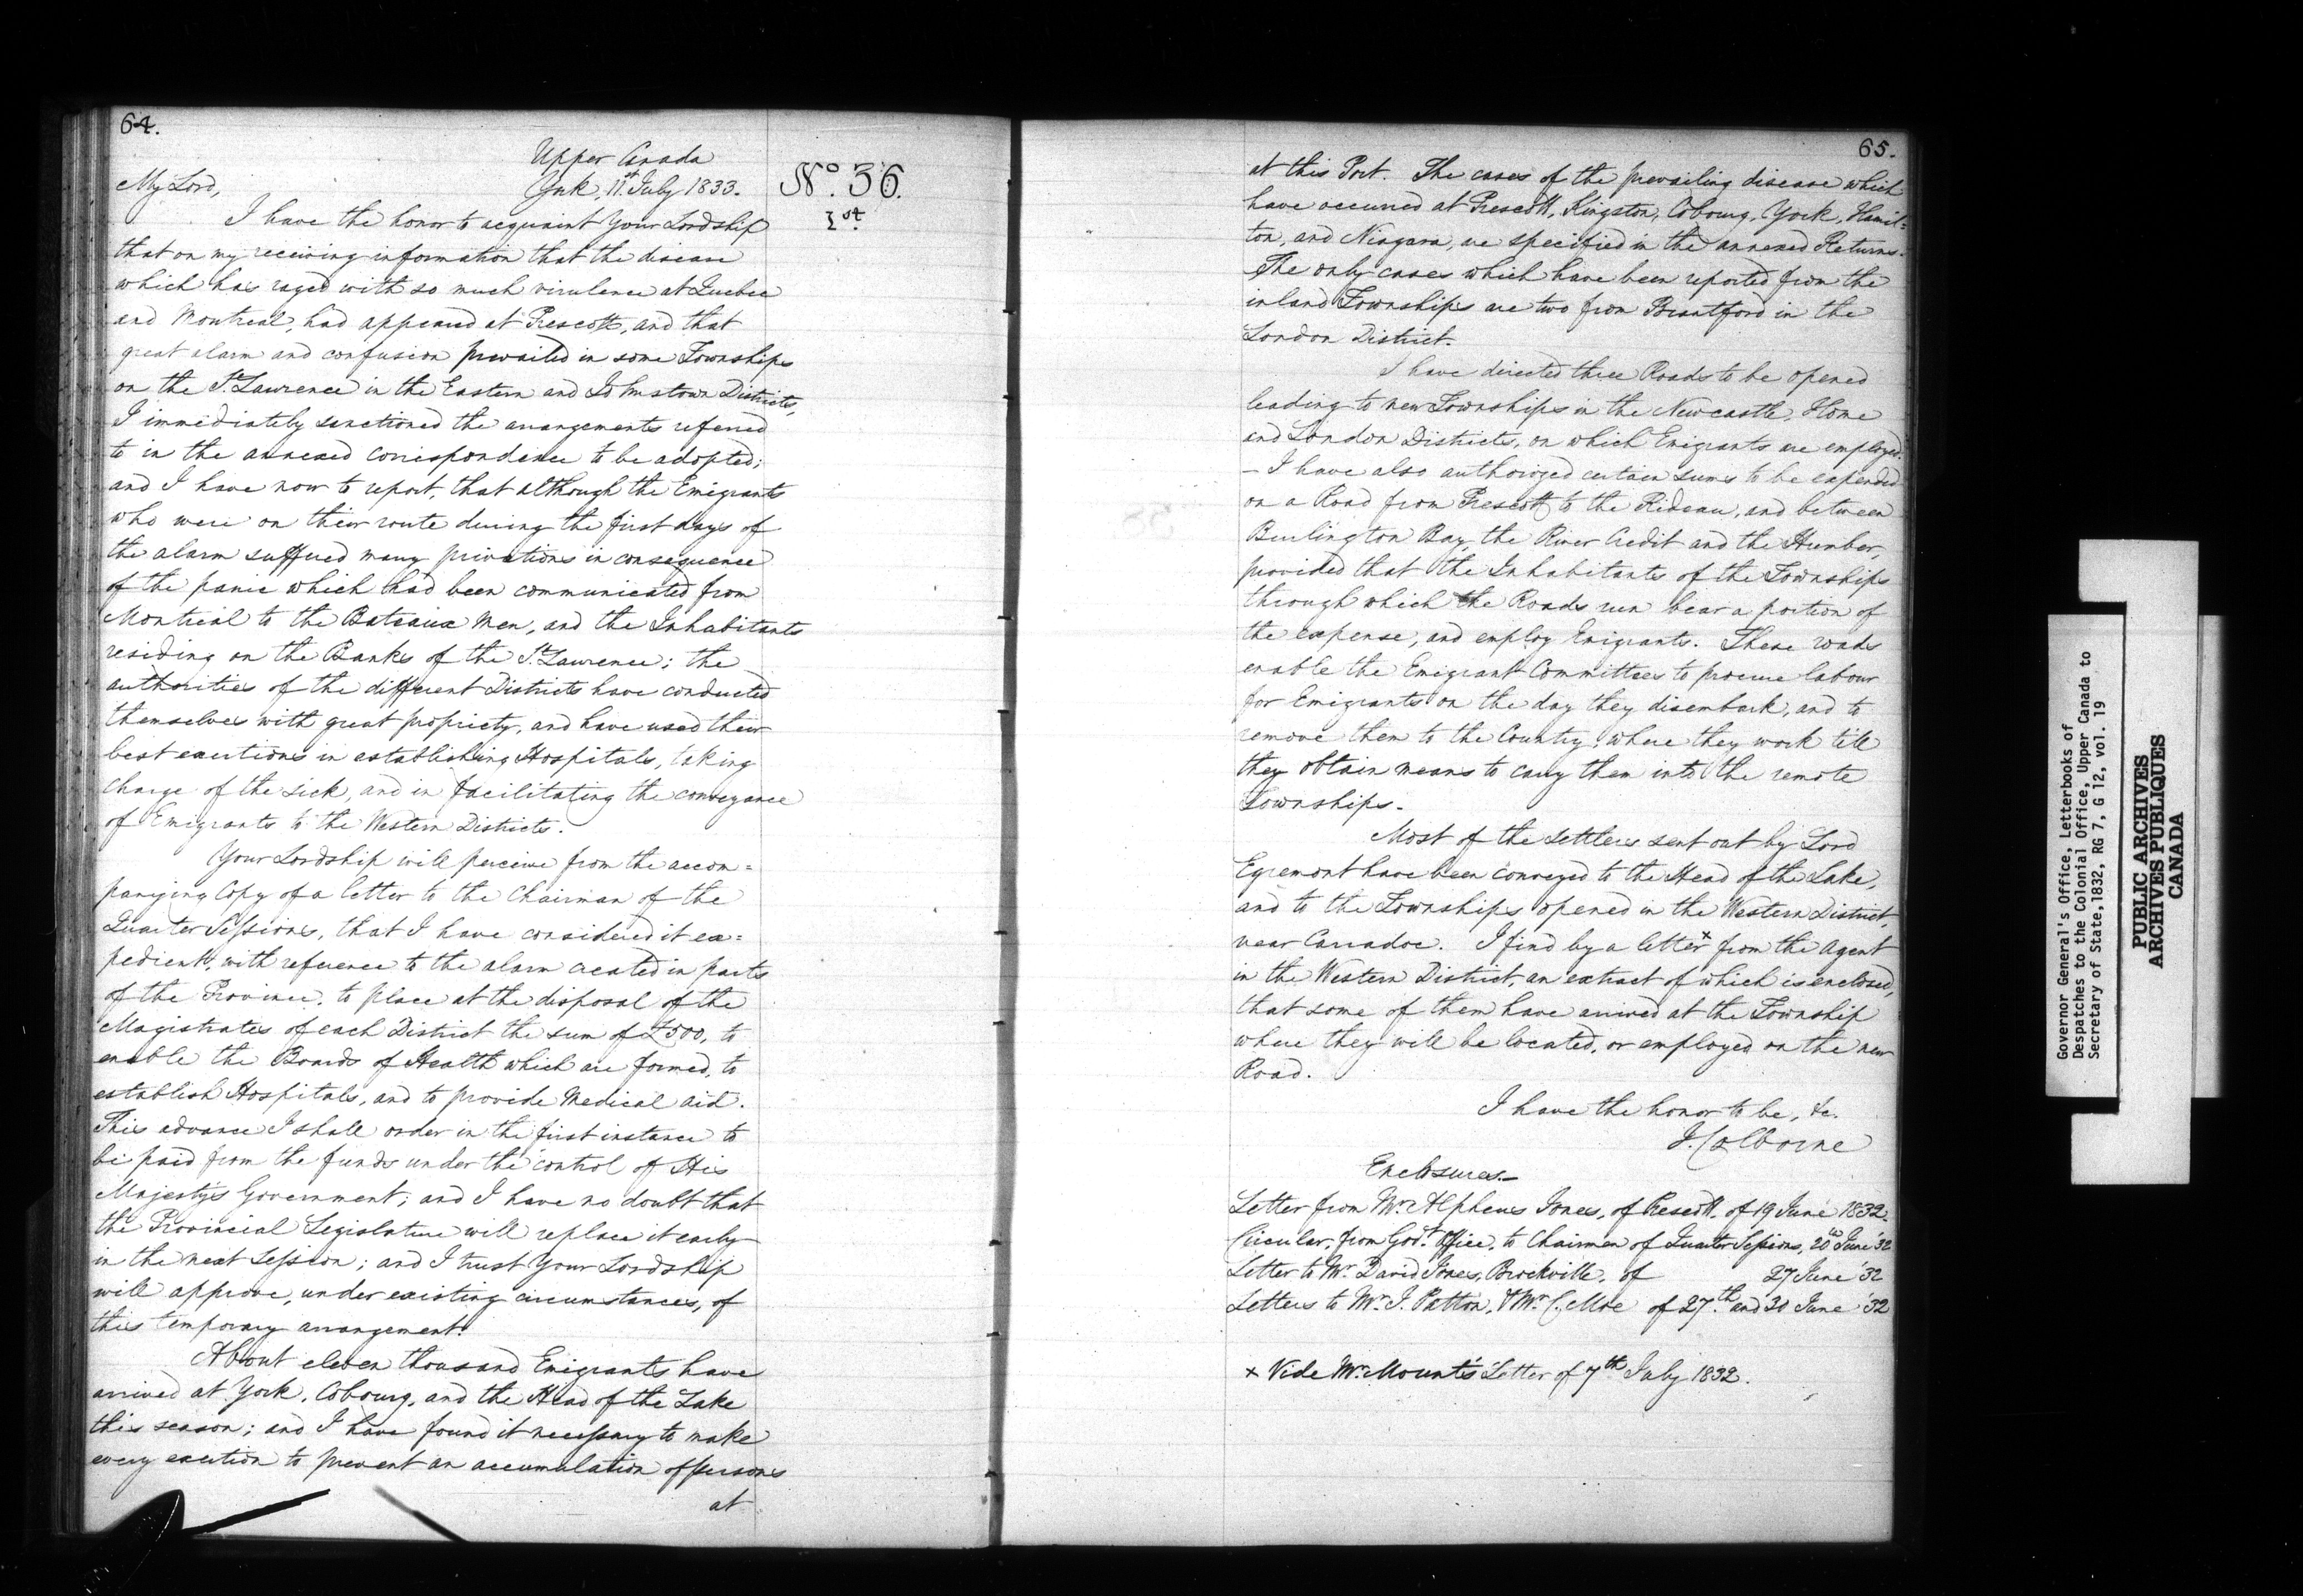 64.
Upper Canada
My Lord,
York, 11st July 1833.
No. 36.
1st
I have the honor to acquaint Your Lordship
that on my receiving information that the disease
which has raged with so much virulence at Quebec
and Montreal, had appeared at Prescott, and that
great alarm and confusion prevailed in some Townships
on the St. Lawrence in the Eastern and Johnstown Districts,
I immediately sanctioned the arrangements referred
to in the annexed correspondence to be adopted;
and I have now to report, that although the Emigrants
who were on their route during the first days of
the alarm suffered many privations in consequence
of the panic which had been communicated from
Montreal to the Bateaux Men, and the Inhabitants
residing on the Banks of the St. Lawrence; the
authorities of the different Districts have conducted
themselves with great propriety, and have used their
best exertions in establishing Hospitals, taking
charge of the sick, and in facilitating the conveyance
of Emigrants to the Western Districts.
Your Lordship will perceive from the accom=
panying Copy of a letter to the Chairman of the
Quarter Sessions, that I have considered it ex=
pedient, with reference to the alarm created in parts
of the Province, to place at the disposal of the
Magistrates of each District the sum of £500, to
enable the Boards of Health which are formed, to
establish Hospitals, and to provide Medical aid.
This advance I shall order in the first instance to
be paid from the funds under the control of His
Majesty's Government; and I have no doubt that
the Provincial Legislature will replace it early
in the next Session; and I trust Your Lordship
will approve, under existing circumstances, of
this temporary arrangement.
About eleven thousand Emigrants have
arrived at York, Cobourg, and the Head of the Lake
this season; and I have found it necessary to make
every exertion to prevent an accumulation of persons
at
65.
at this Port. The cases of the prevailing disease which
have occurred at Prescott, Kingston, Cobourg, York, Hamil=
ton, and Niagara, are specified in the annexed Returns.
The only cases which have been reported from the
inland Townships are two from Brantford in the
London District.
I have directed three Roads to be opened
leading to new Townships in the Newcastle, Home
and London Districts, on which Emigrants are employed.
- I have also authorized certain sums to be expended
on a Road from Prescott to the Rideau, and between
Burlington Bay, the River Credit and the Humber,
provided that the Inhabitants of the Townships
through which the Roads run bear a portion of
the expense, and employ Emigrants. These roads
enable the Emigrant Committees to procure labour
for Emigrants on the day they disembark, and to
remove them to the Country, where they work till
they obtain means to carry them into the remote
Townships.
Most of the settlers sent out by Lord
Egremont have been conveyed to the Head of the Lake,
and to the Townships opened in the Western District,
near Carradoc. I find by a letter x from the Agent
in the Western District, an extract of which is enclosed,
that some of them have arrived at the Township
where they will be located, or employed on the new
Road.
I have the honor to be, &c.
J. Colborne
Enclosures.-
Letter from Mr. Alpheus Jones, of Prescott, of 19 June 1832.
Circular, from Govt. Office, to Chairmen of Quarter Sessions, 20th June '32
Letter to Mr. David Jones, Brockville, of 27 June '32
Letters to Mr. J. Patton, & Mr. C. Moe of 27th and 30 June '32
x Vide Mr. Mount's Letter of 7th July 1832.
Governor General's Office, Letterbooks of
Despatches to the Colonial Office, Upper Canada to
Secretary of State, 1832, RG 7, G 12, vol. 19
PUBLIC ARCHIVES
ARCHIVES PUBLIQUES
CANADA